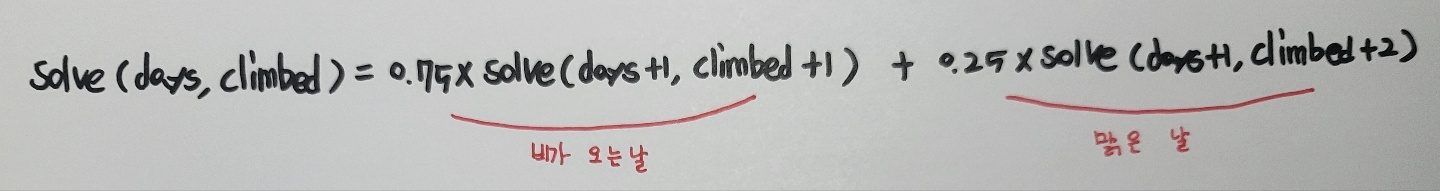 solve (days, climbed) = 0.75 x solve (days+1, climbed +1) + 0.25 x solve (days+1, climbed+2)
비가 오는날 맑은 날